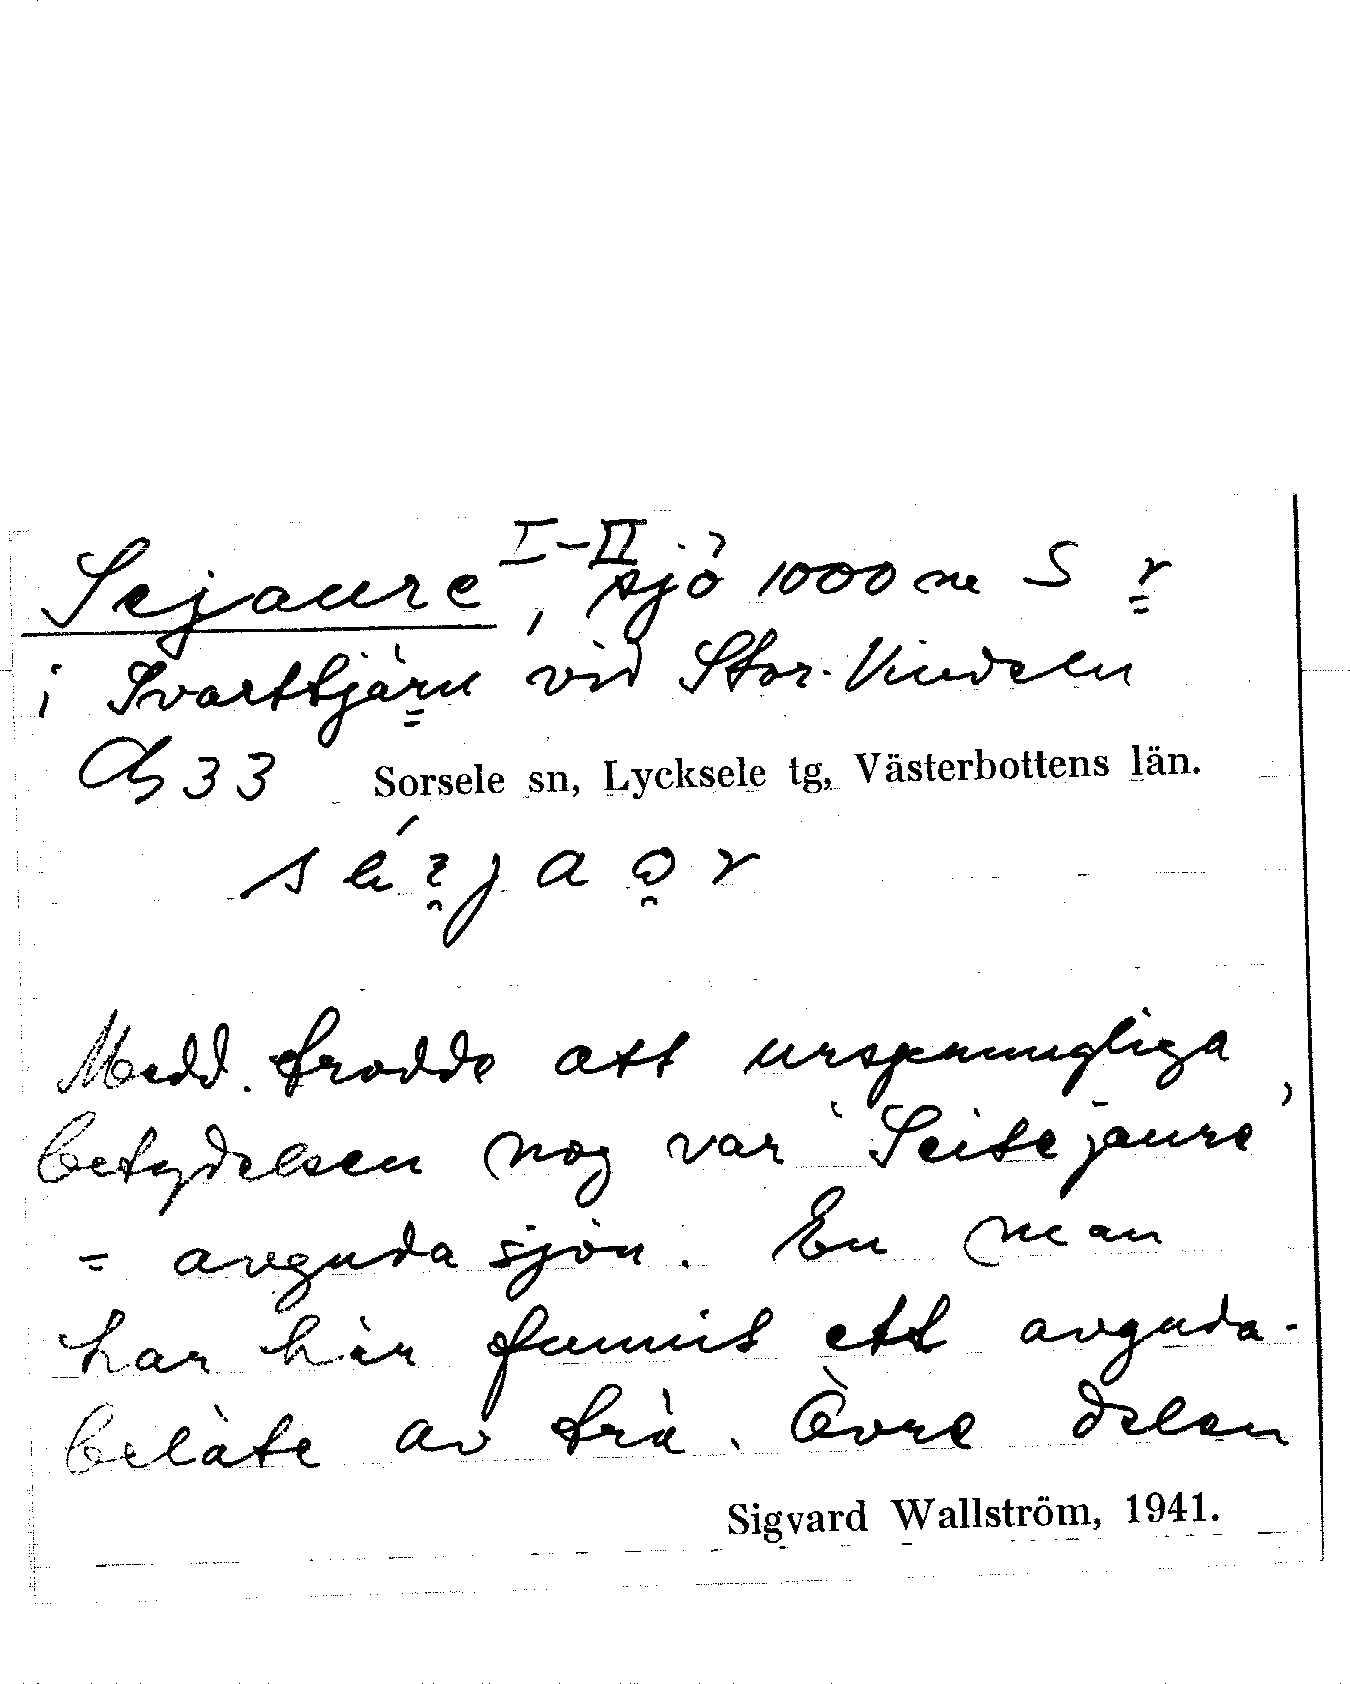 Sejaure I–II, sjö 1000 m S r
i Svarttjärn vid Stor-Vindeln
33 Sorsele sn, Lycksele tg, Västerbottens län.
Medd. trodde att ursprungliga
betydelsen nog var "Seitejaure"
= avguda sjön. En man
har här funnit ett avguda-
beläte av trä. Övre delen
Sigvard Wallström, 1941.